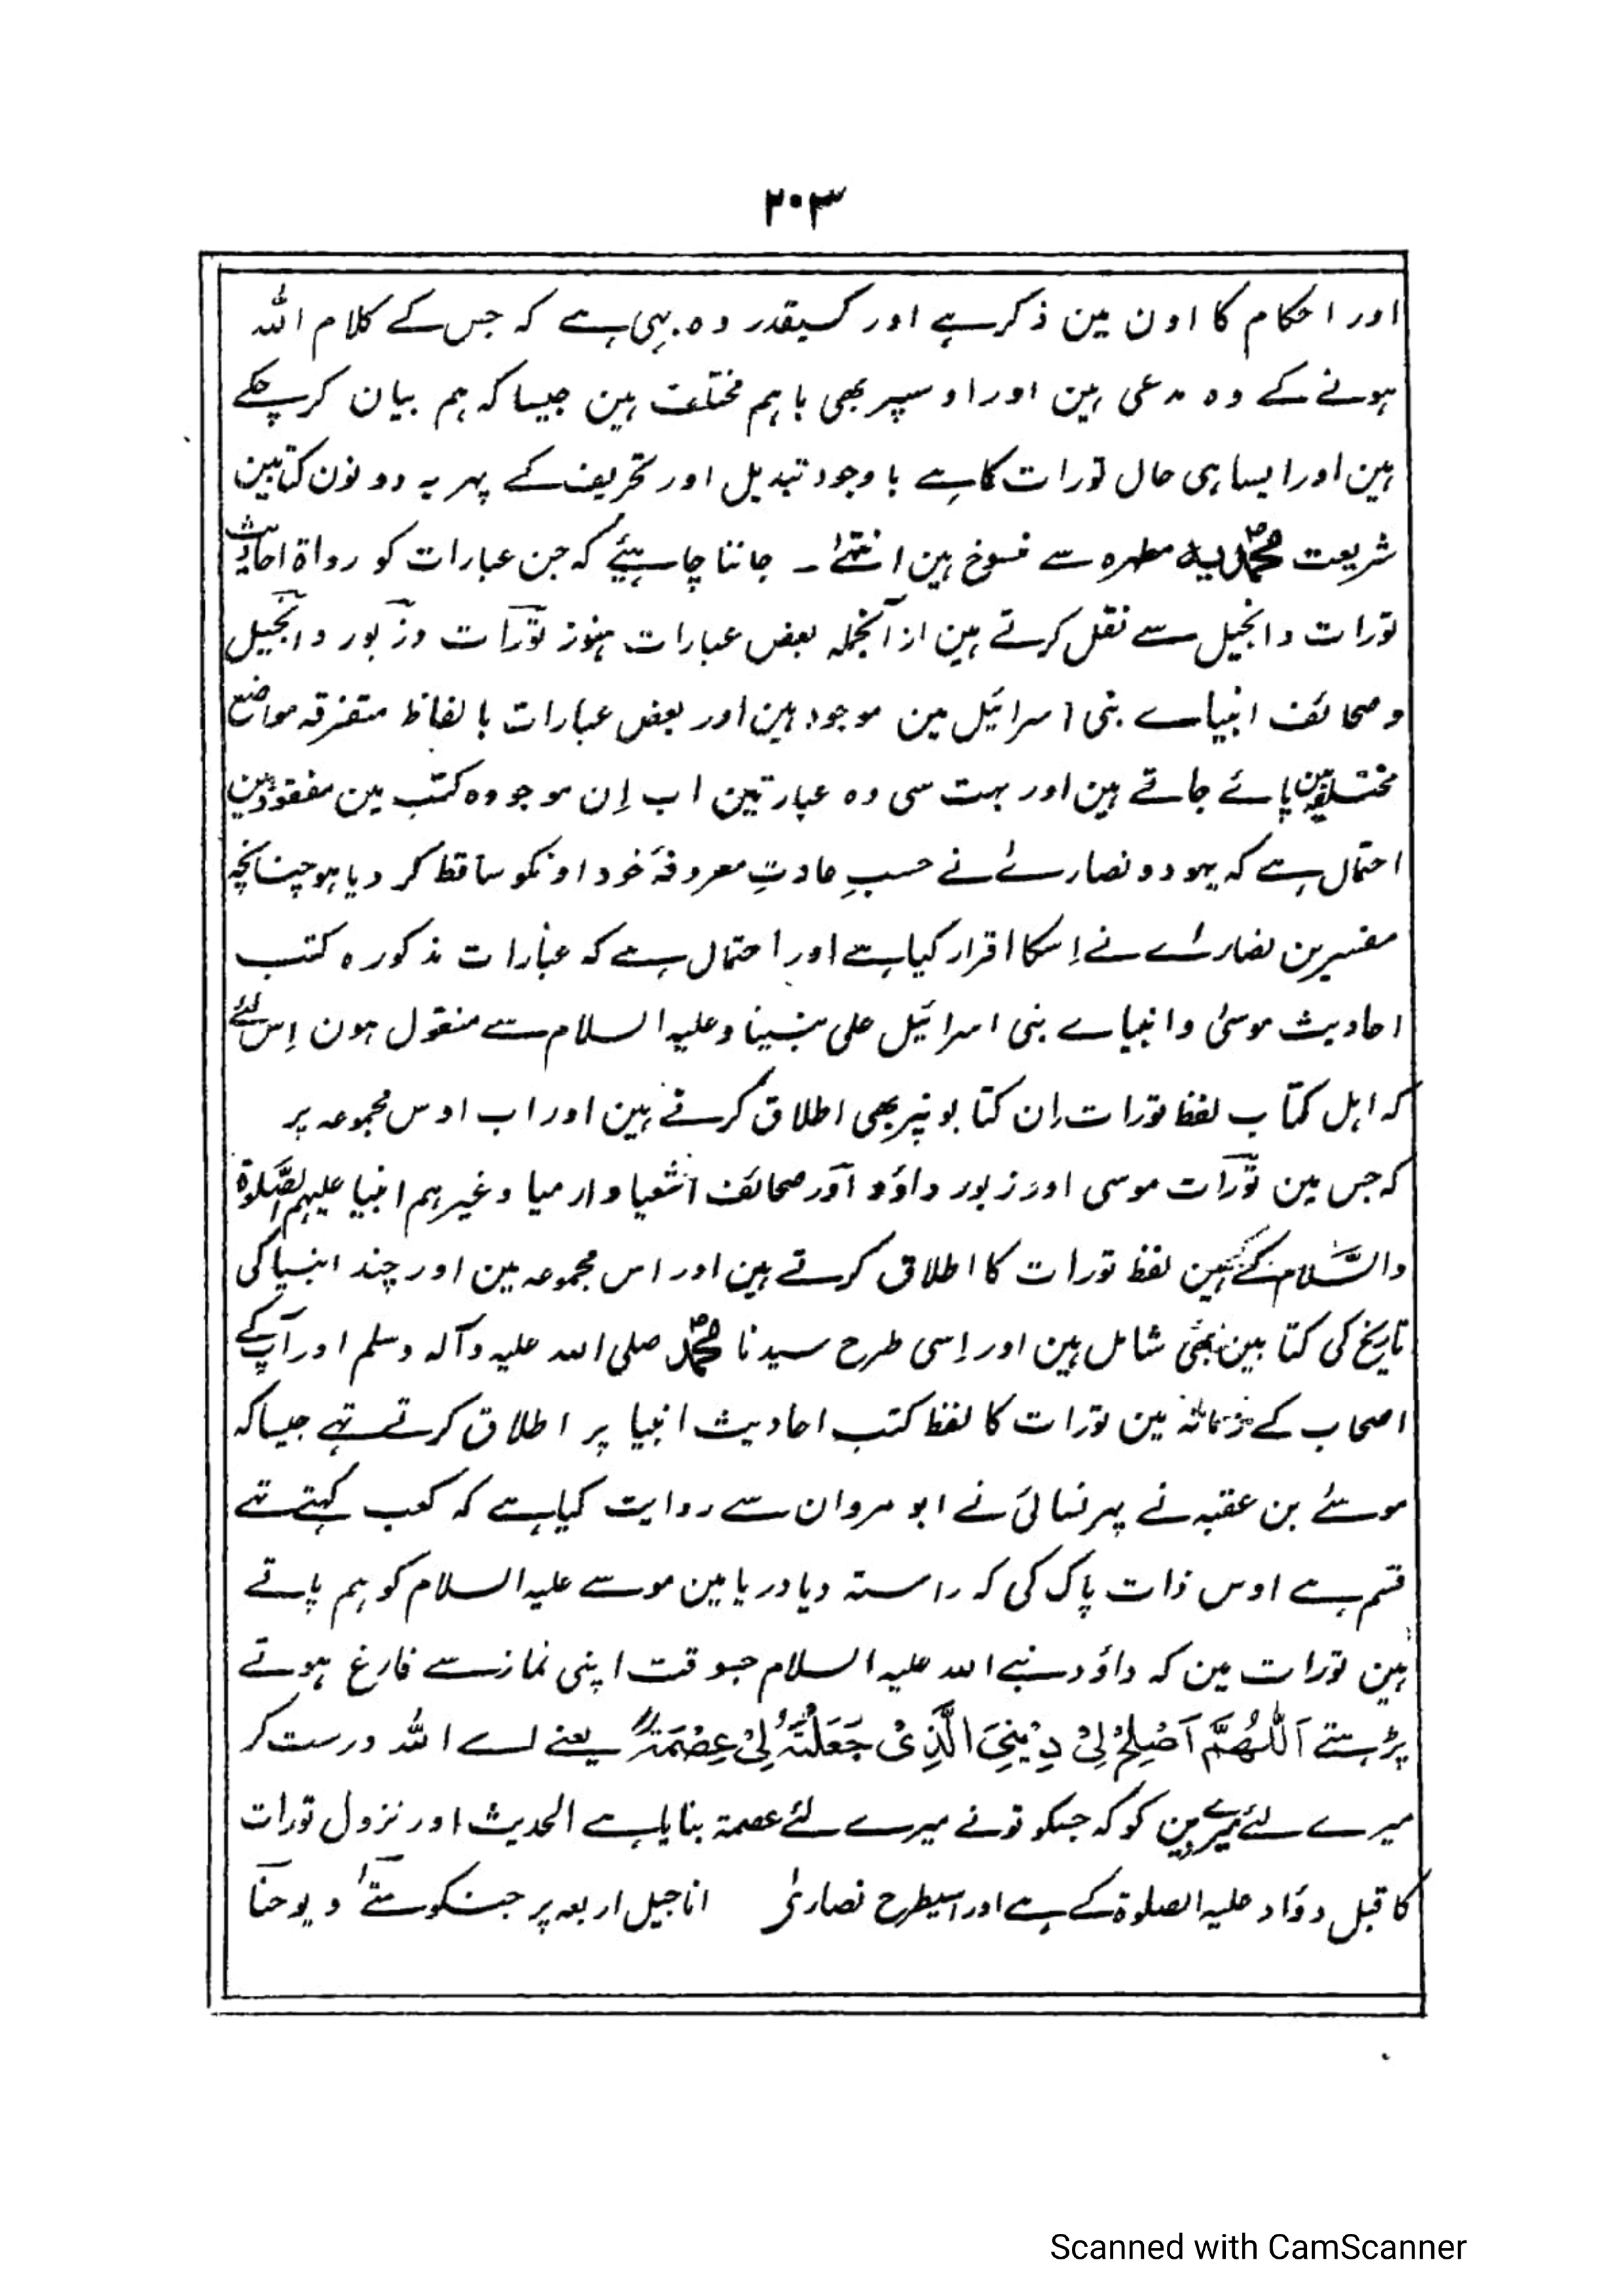 ۲۰۳
اور احکام کا اون مین ذکر ہے اور کسیقدر وہ بہی ہے کہ جس کے کلام اللہ
ہونے کے وہ مدعی ہین اور اوسپر بھی باہم مختلف ہین جیسا کہ ہم بیان کرچکے
ہین اور ایسا ہی حال تورات کا ہے باوجود تبدیل اور تحریف کے پہر یہ دونون کتابین
شریعت محمدیہ مطہرہ سے منسوخ ہین انتہٰے ۔ جاننا چاہیئے کہ جن عبارات کو رواۃ احادیث
تورات و انجیل سے نقل کرتے ہین ازانجملہ بعض عبارات ہنوز تورات و زبور و انجیل
و صحائف انبیاے بنی اسرائیل مین موجود ہین اور بعض عبارات بالفاظ متفرقہ مواضع
مختلفہ مین پائے جاتے ہین اور بہت سی وہ عبارتین اب اِن موجودہ کتب مین مفقود ہین
احتمال ہے کہ یہود و نصارےٰ نے حسبِ عادتِ معروفۂ خود اونکو ساقط کر دیا ہو چنانچہ
مفسرین نصارےٰ نے اِسکا اقرار کیا ہے اور احتمال ہے کہ عبارات مذکورہ کتب
احادیث موسیٰ و انبیاے بنی اسرائیل علی نبینا وعلیہ السلام سے منقول ہون اِس لئے
کہ اہل کتاب لفظ تورات اِن کتابونپر بھی اطلاق کرتے ہین اور اب اوس مجموعہ پر
کہ جس مین تورات موسی اور زبور داؤد اور صحائف اشعیا و ارمیا وغیرہم انبیا علیہم الصَّلوۃ
والسَّلام کے ہین لفظ تورات کا اطلاق کرتے ہین اور اس مجموعہ مین اور چند انبیا کی
تاریخ کی کتابین بھی شامل ہین اور اِسی طرح سیدنا محمدؐ صلی اللہ علیہ وآلہ وسلم اور آپ کے
اصحاب کے زمانہ مین تورات کا لفظ کتب احادیث انبیا پر اطلاق کرتے تہے جیسا کہ
موسےٰ بن عقبہ نے پہر نسائی نے ابو مروان سے روایت کیا ہے کہ کعب کہتے تہے
قسم ہے اوس ذات پاک کی کہ راستہ دیا دریا مین موسے علیہ السلام کو ہم پاتے
ہین تورات مین کہ داؤد نبے اللہ علیہ السلام جسوقت اپنی نماز سے فارغ ہوتے
پڑہتے اَللّٰھُمَّ اَصْلِحْ لِیْ دِیْنِیَ الَّذِیْ جَعَلْتَہٗ لِیْ عِصْمَۃً یعنے اے اللہ درست کر
میرے لئے میرے دین کو کہ جسکو تونے میرے لئے عصمۃ بنایا ہے الحدیث اور نزول تورات
کا قبل دؤاد علیہ الصلوۃ کے ہے اور اسیطرح نصاریٰ اناجیل اربعہ پر جسکو متےٰ و یوحنا
Scanned with CamScanner